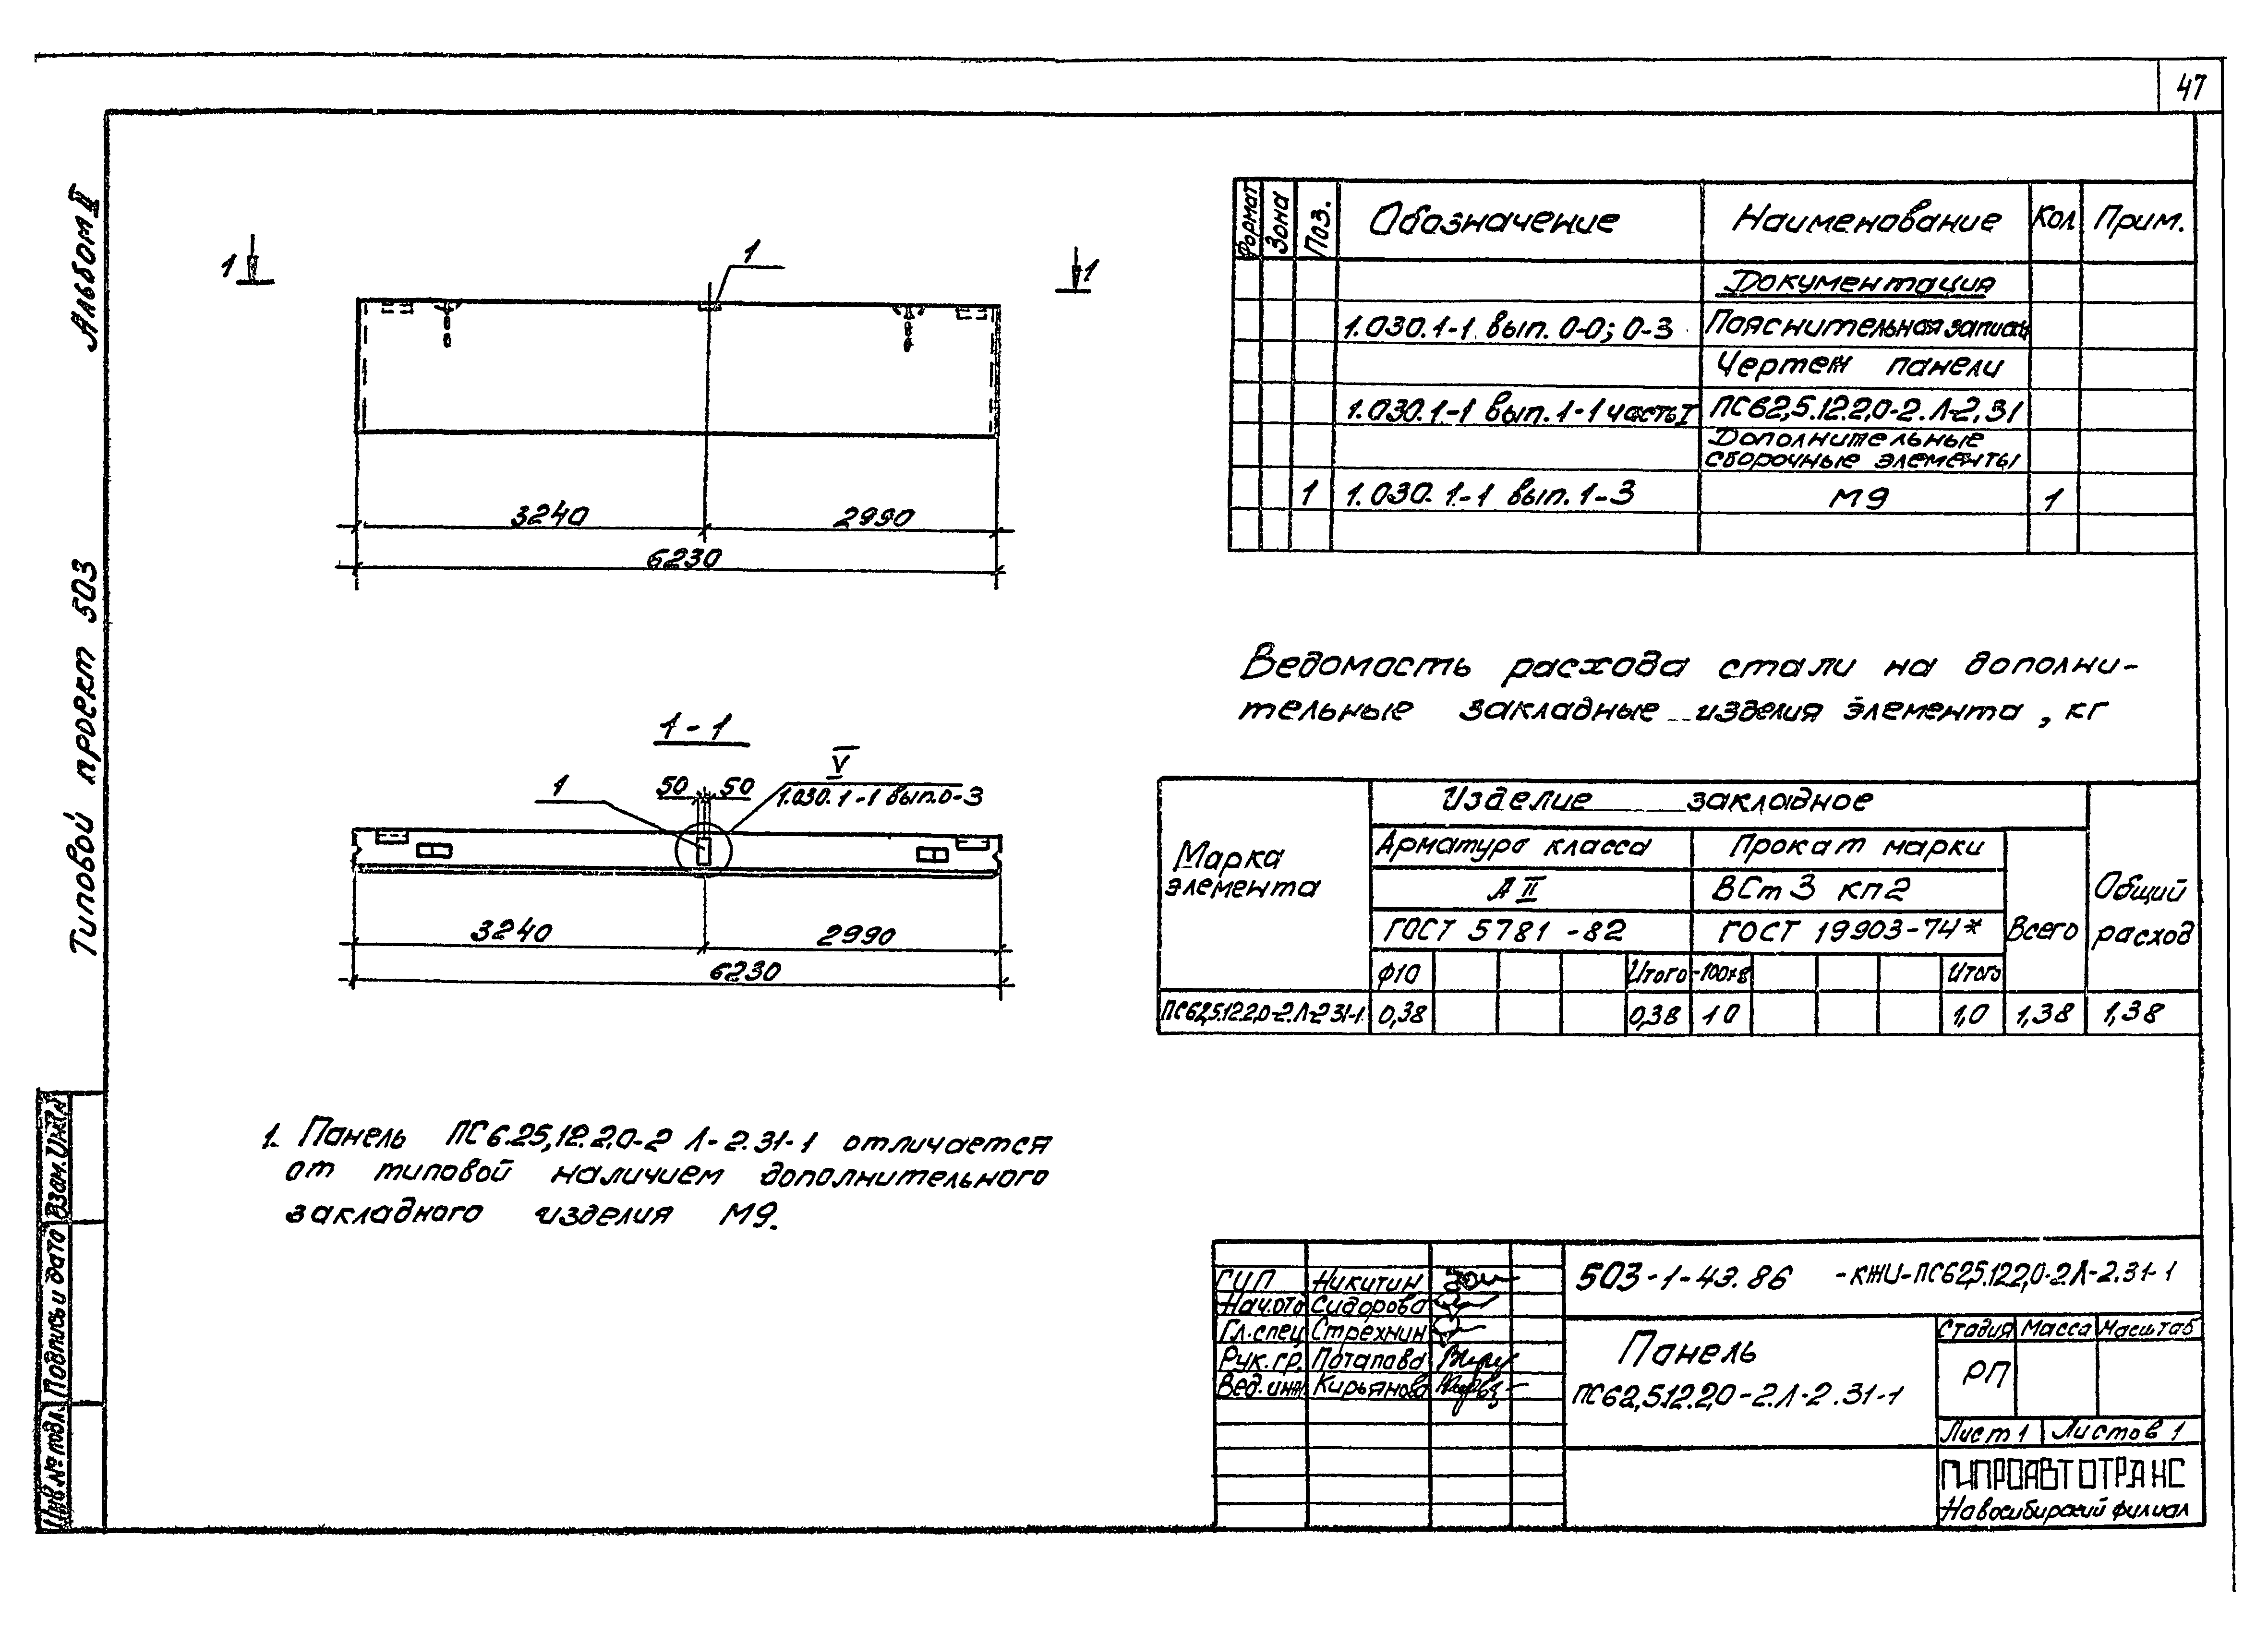 47
Альбом II
Типовой проект 503
1
1
1
3240
2990
6230
1-1
1
50
50
V
1.030.1-1 вып.0-3
3240
2990
6230
1. Панель ПС6.25,12.2,0-2 Л-2.31-1 отличается
от типовой наличием дополнительного
закладного изделия М9.
Формат
Зона
Поз.
Обозначение
Наименование
Кол
Прим.
Документация
1.030.1-1 вып. 0-0; 0-3
Пояснительная записка
Чертеж панели
1.030.1-1 вып.1-1 часть I
ПС62,5.12.2,0-2.Л-2,31
Дополнительные
сборочные элементы
1
1.030.1-1 вып.1-3
М9
1
Ведомость расхода стали на дополни-
тельные закладные изделия элемента, кг
Марка
элемента
Изделие закладное
Арматура класса
Прокат марки
А II
ВСт3 кп2
ГОСТ 5781-82
ГОСТ 19903-74*
Всего
Общий
расход
Ф10
Итого
-100х8
Итого
ПС62,5.12.2,0-2.Л-2 31-1
0,38
0,38
1 0
1,0
1,38
1,38
ГИП
Никитин
Нач.отд
Сидорова
Гл.спец
Стрехнин
Рук.гр.
Потапова
Вед.инж
Кирьянова
503-1-43.86 -КЖИ-ПС62,5.12.2,0-2.Л-2.31-1
Панель
ПС62,5.12.2,0-2.Л-2.31-1
Стадия
Масса
Масштаб
РП
Лист 1
Листов 1
ГИПРОАВТОТРАНС
Новосибирский филиал
Взам.Инв.№
Подпись и дата
Инв.№ подл.